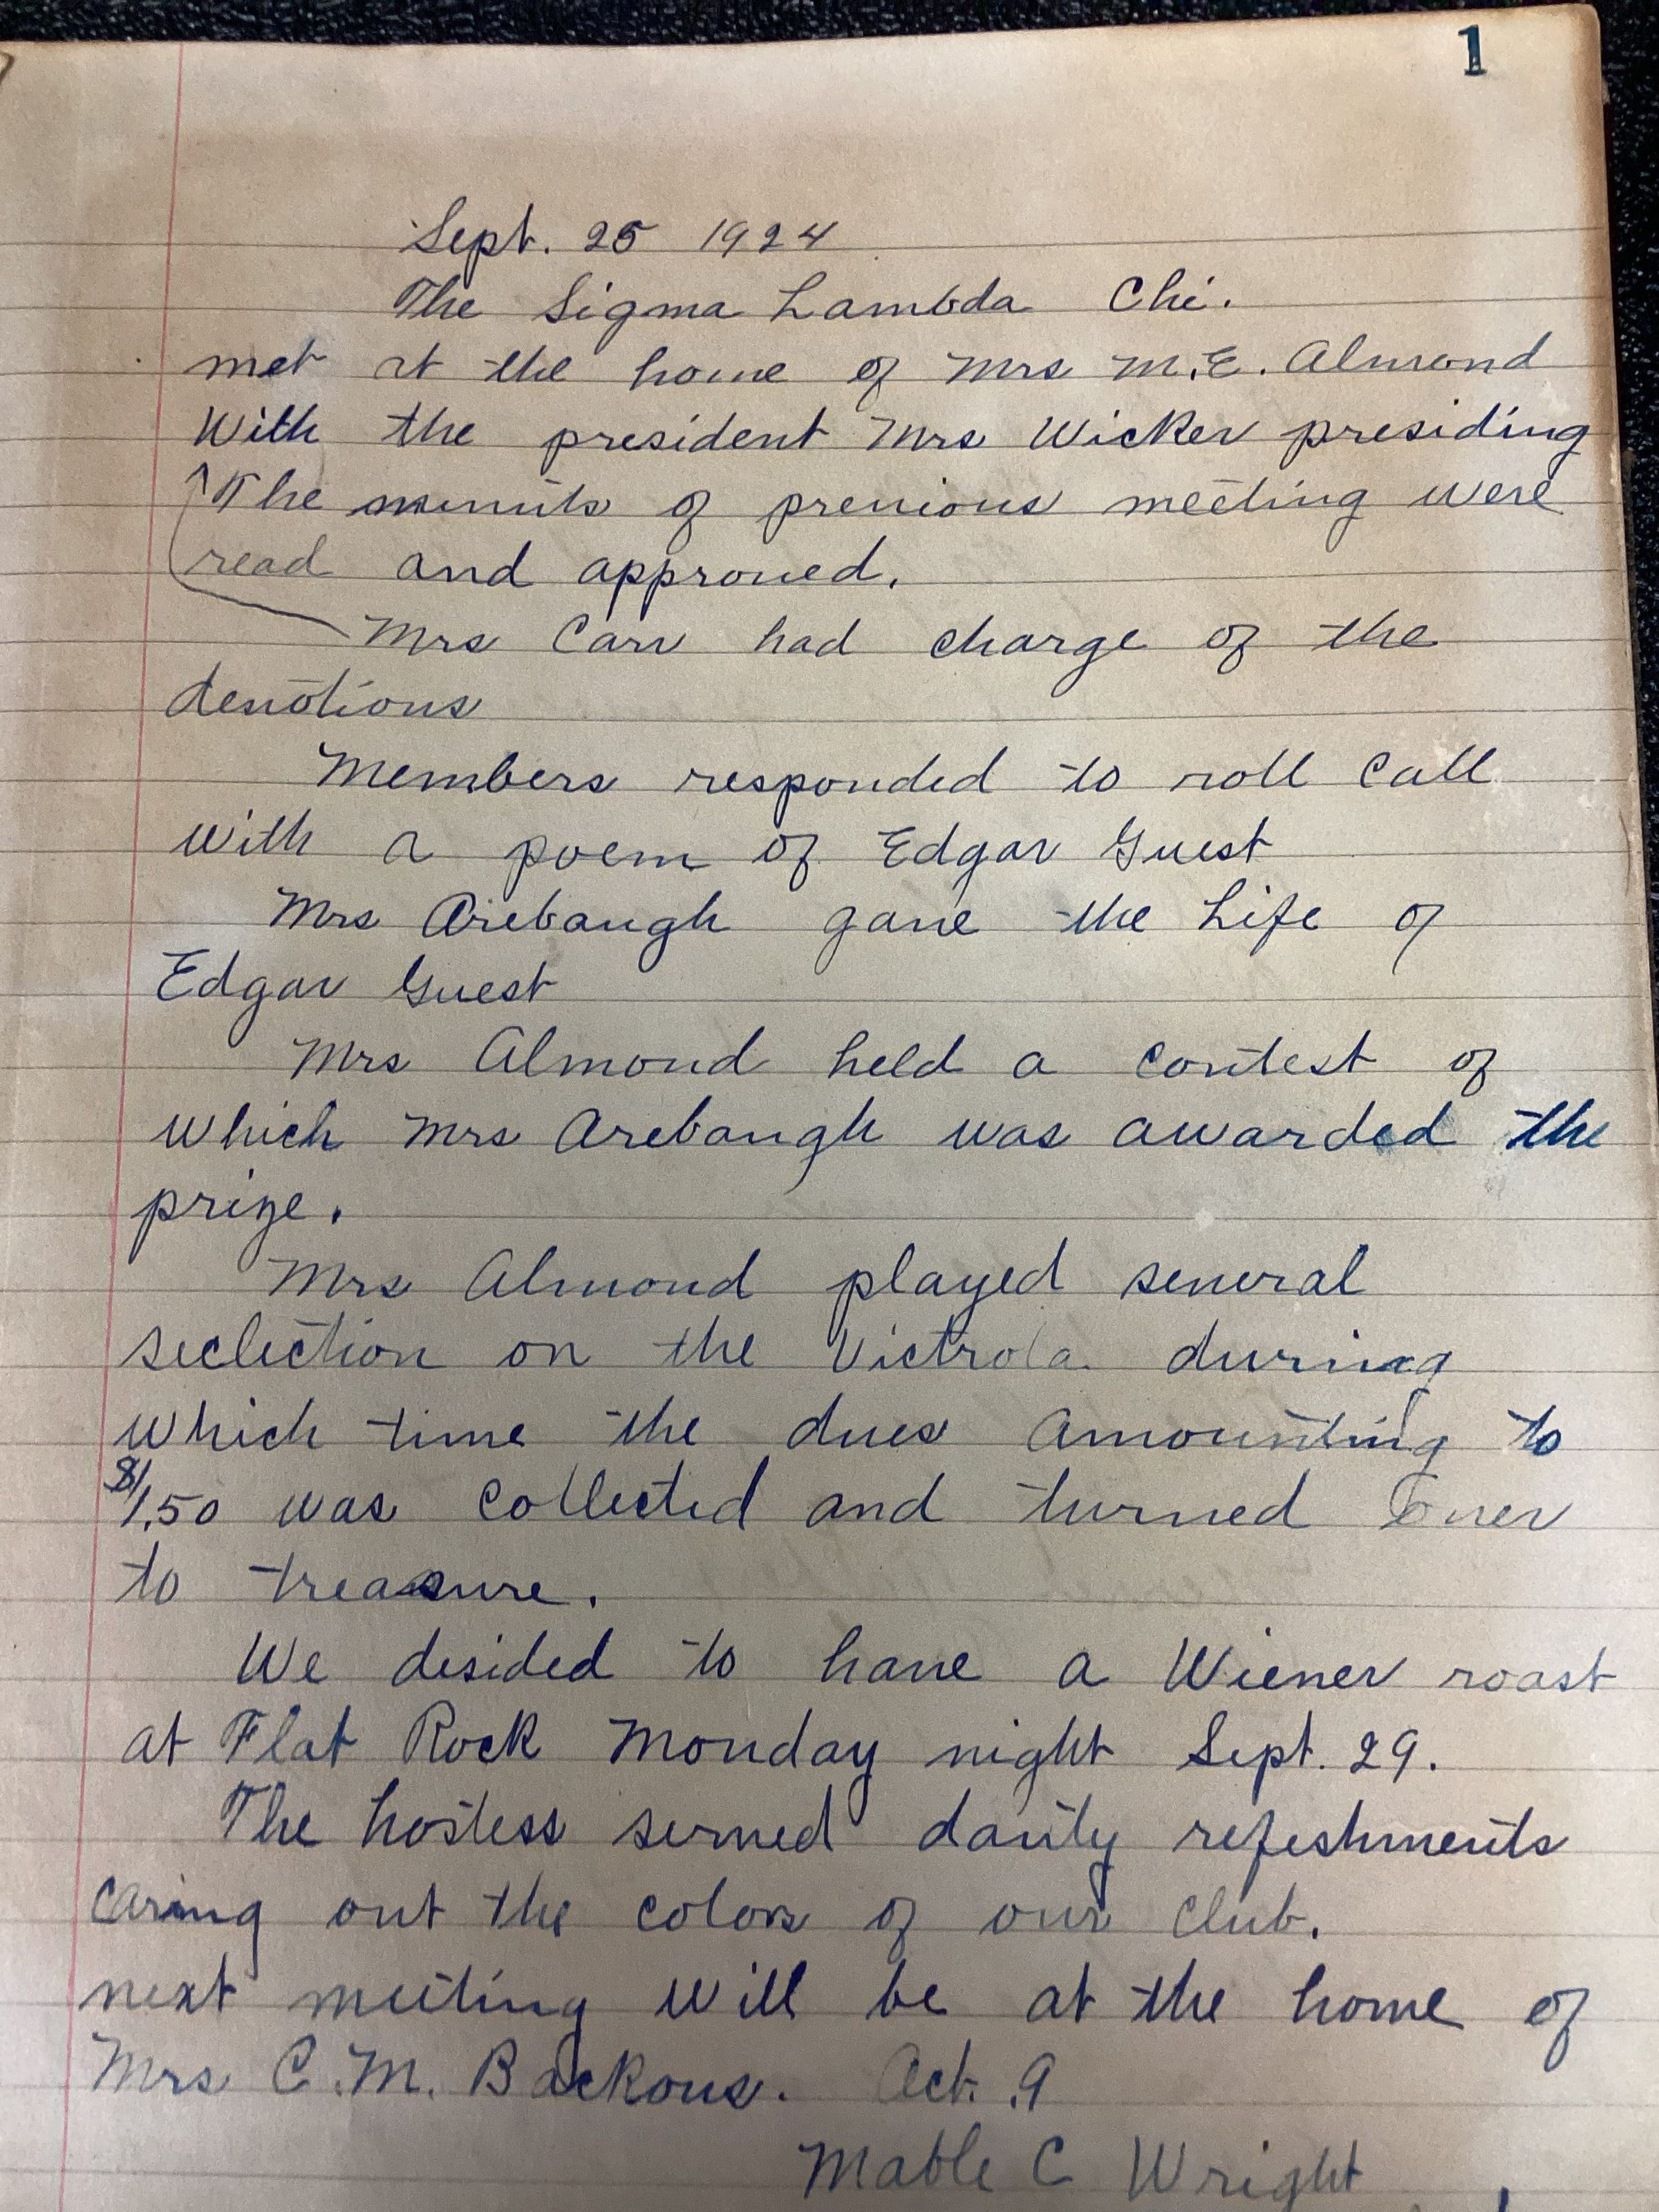 1
Sept. 25 1924
The Sigma Lambda Chi.
met at the home of Mrs M.E. Almond
With the president Mrs Wicker presiding
The minuts of previous meeting were
read and approved.
Mrs Carr had charge of the
devotions
Members responded to roll call
with a poem of Edgar Guest
Mrs Arebaugh gave the Life of
Edgar Guest
Mrs Almond held a contest of
which Mrs Arebaugh was awarded the
prize.
Mrs Almond played several
seclection on the Victrola during
which time the dues amounting to
$1.50 was collected and turned over
to treasure.
We desided to have a Wiener roast
at Flat Rock Monday night Sept. 29.
The hostess served danty refeshments
caring out the colors of our club.
next meeting will be at the home of
Mrs C.M. Backous. Oct. 9
Mable C Wright